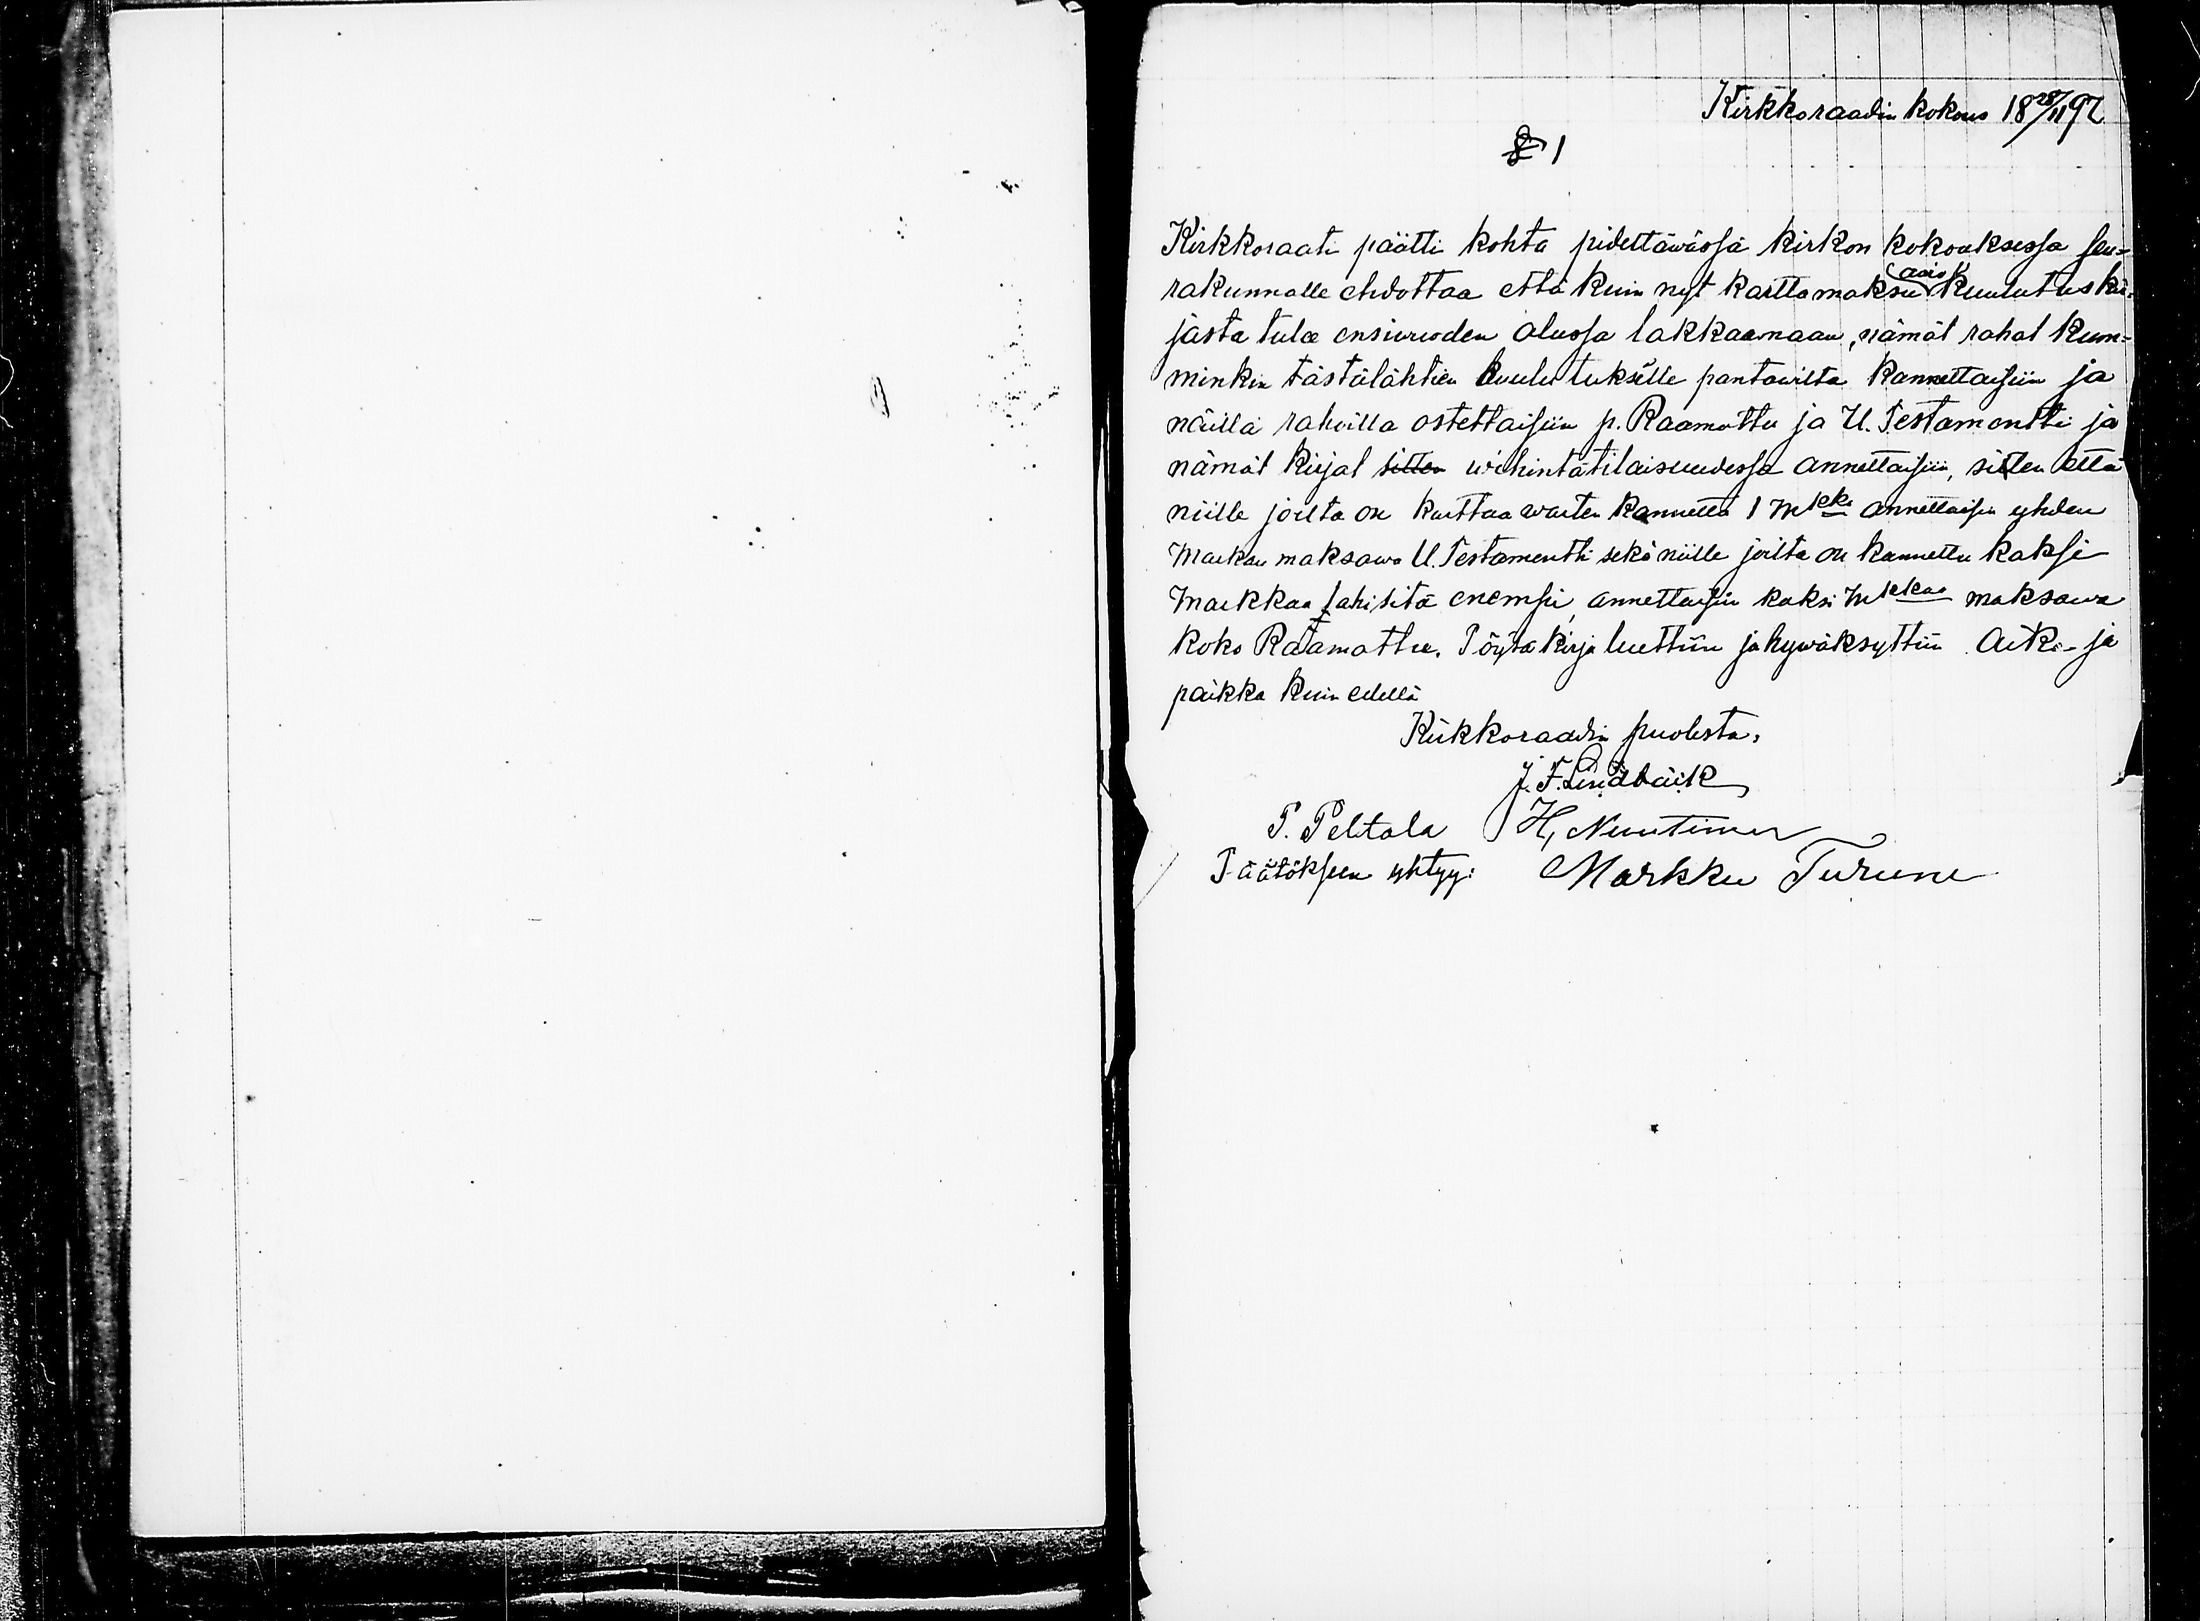 Kirkkoraadin kokous 18 28/11 92
§ 1
Kirkkoraati päätti kohta pidettäwässä kirkon kokouksessa seu-
rakunnalle ehdottaa että kuin nyt karttamaksu (aviok) kuulutuskir-
jasta tulee ensiwuoden alussa lakkaamaan, nämät rahat kum-
minkin tästälähtien kuulutukselle pantawilta kannettaisiin ja
näillä rahoilla ostettaisiin p. Raamattu ja U. Testamentti ja
nämät kirjat sitten wihintätilaisuudessa annettaisiin, sitten että
niille joilta on karttaa warten kannettu 1 mkka annettaisiin yhden
Markan maksawa U. Testamentti sekä niille joilta on kannettu kaksi
Markkaa tahi sitä enempi, annettaisiin kaksi mkkaa maksawa
koko Raamattu. Pöytäkirja luettiin ja hywäksyttiin. Aika- ja
paikka kuin edellä
Kirkkoraadin puolesta,
J. F. Lindbäck
P. Peltola H, Nuutinen
Päätökseen yhtyy: Markku Turune